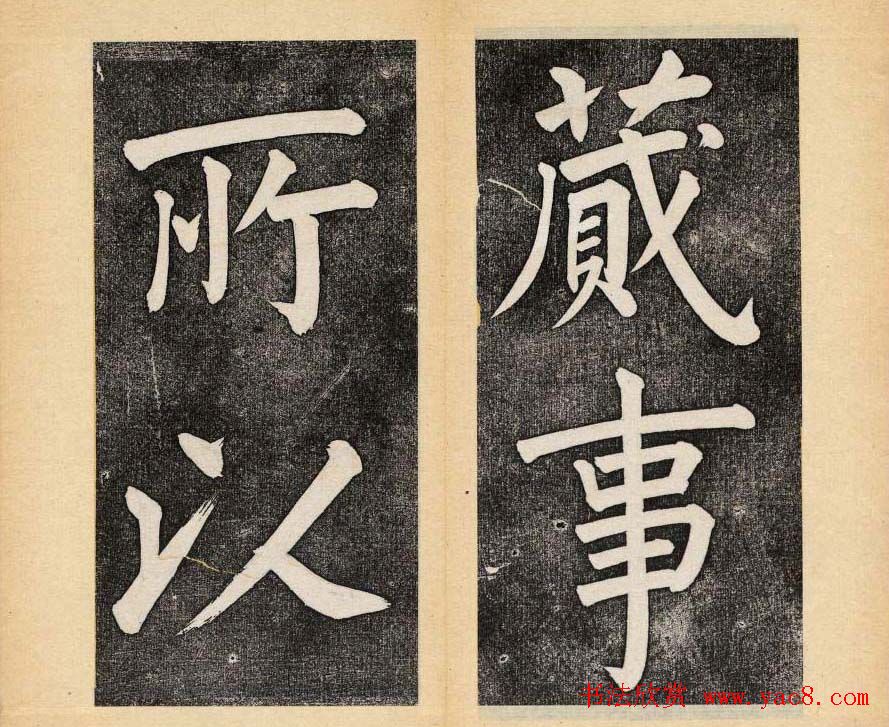 蕆事
所以
书法欣赏 www.yac8.com